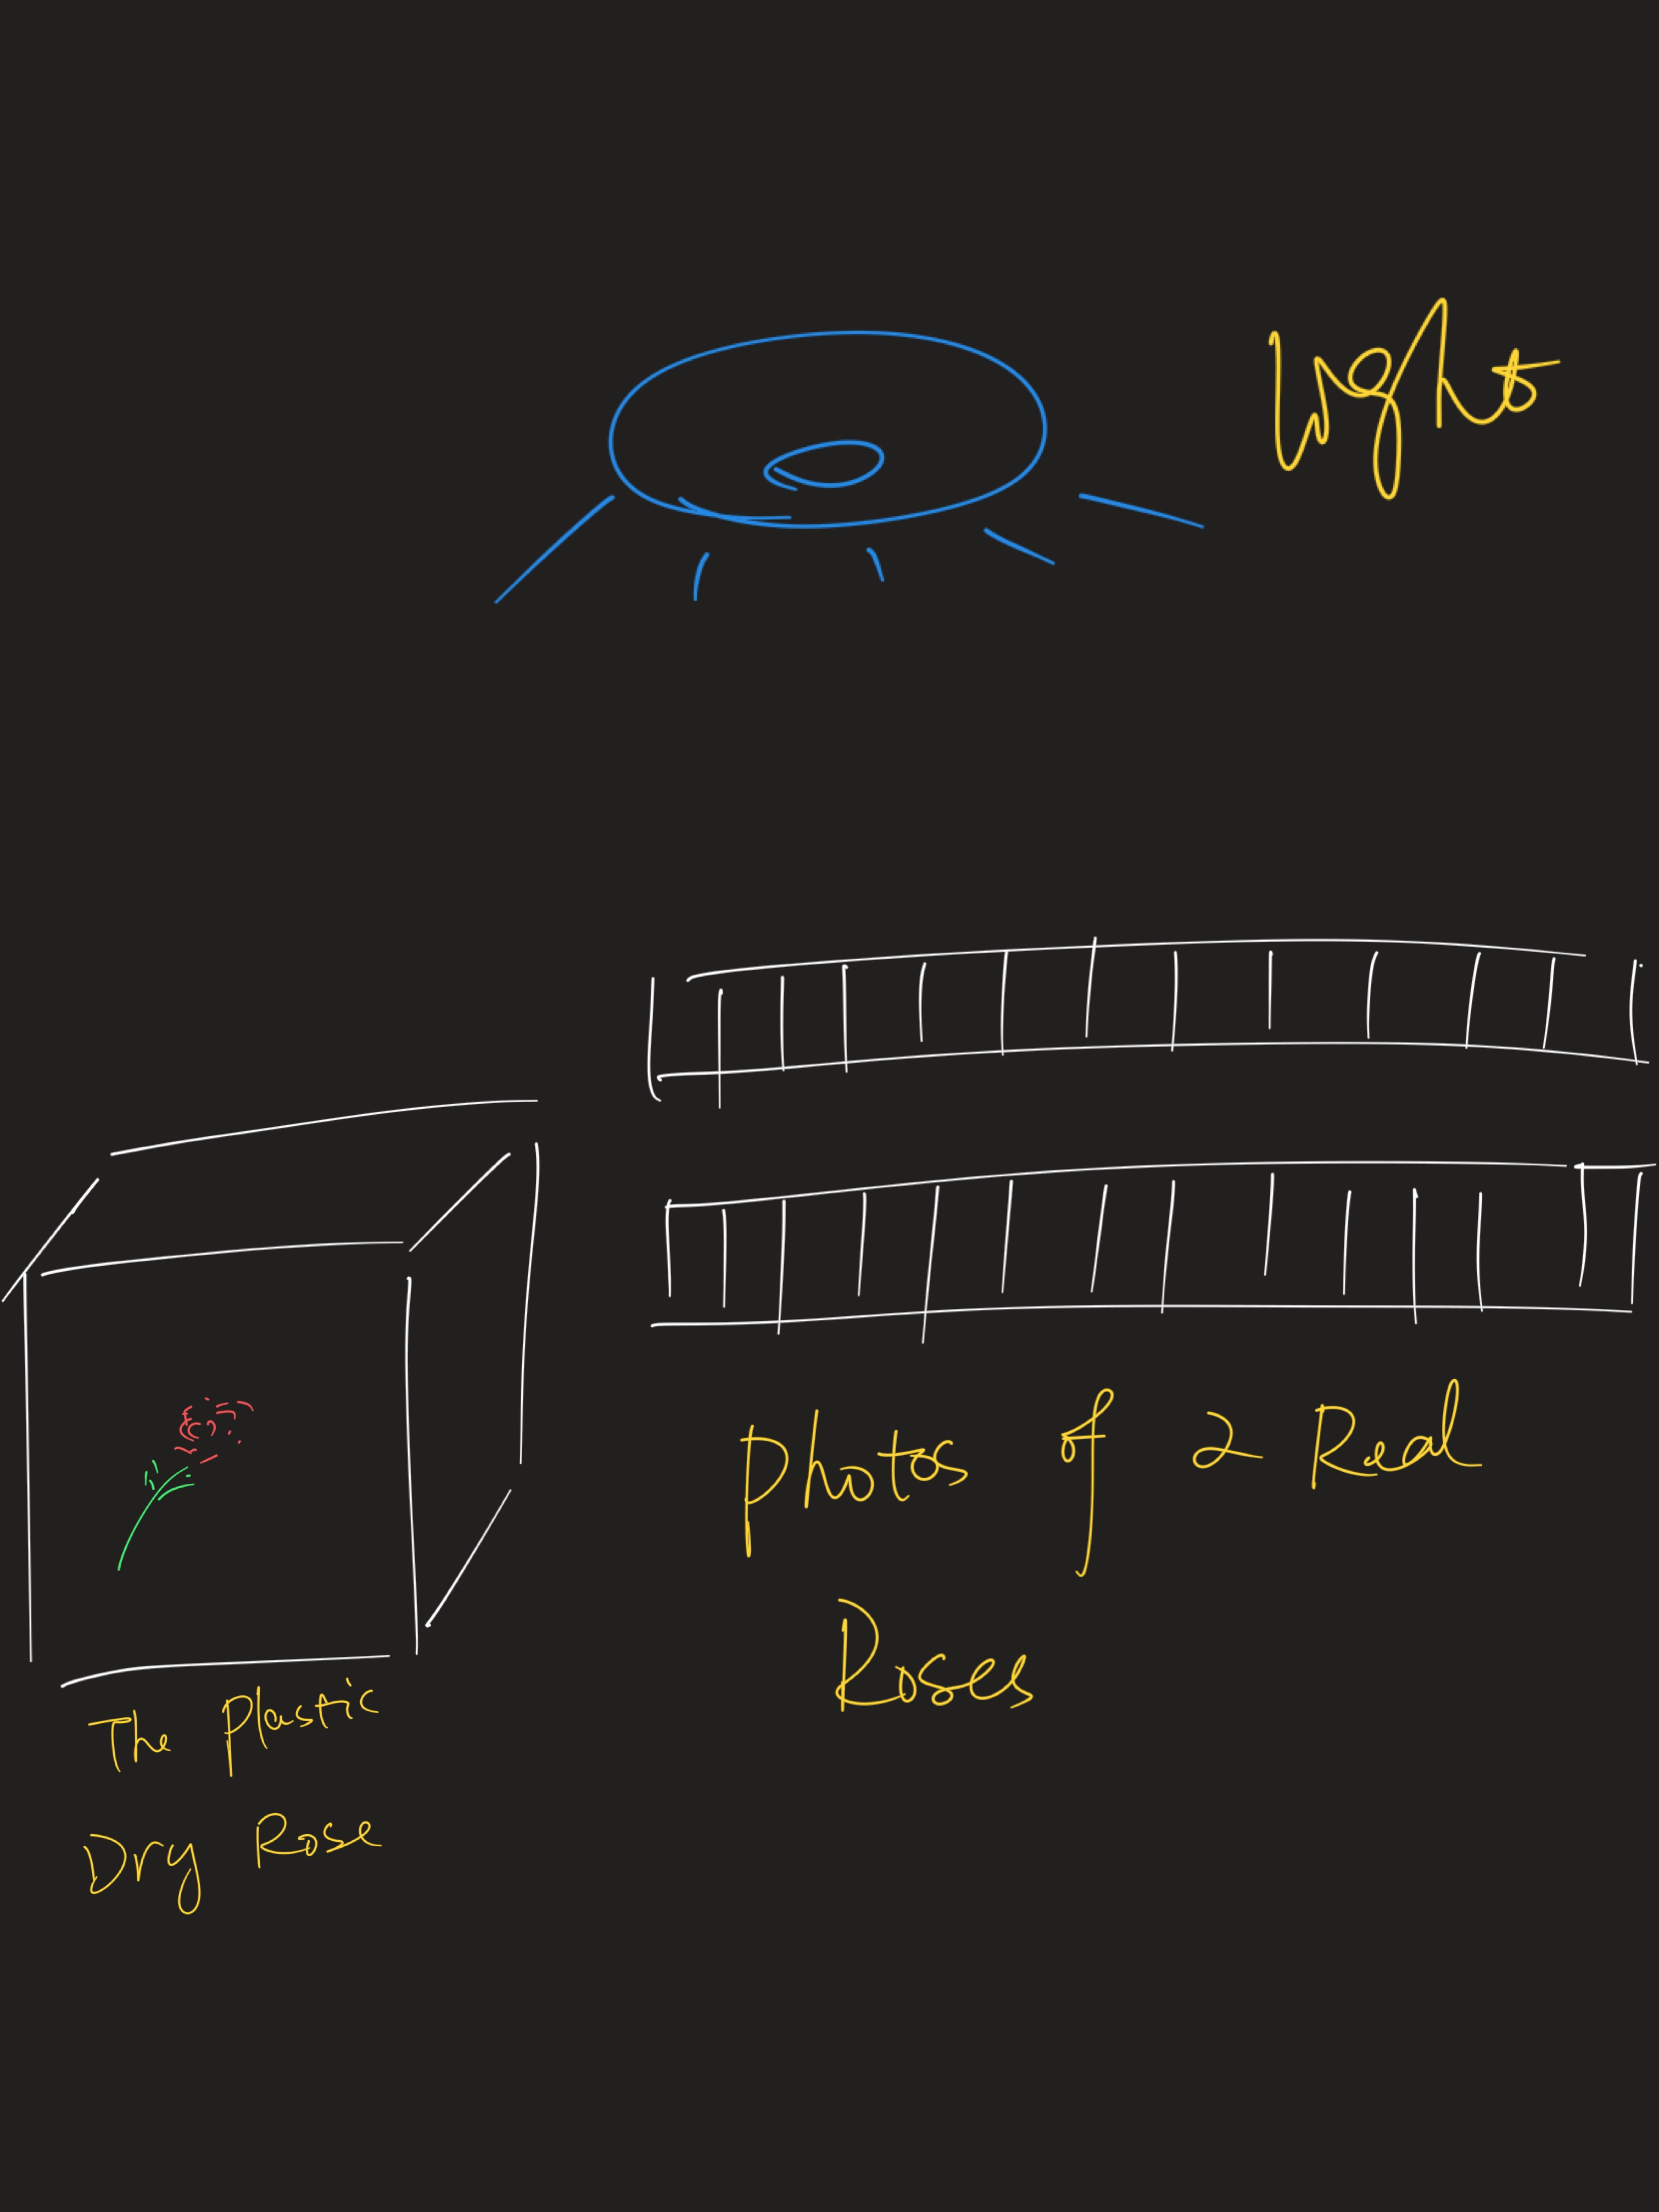 Light
Photos of 2 Real
Roses
The Plastic
Dry Rose